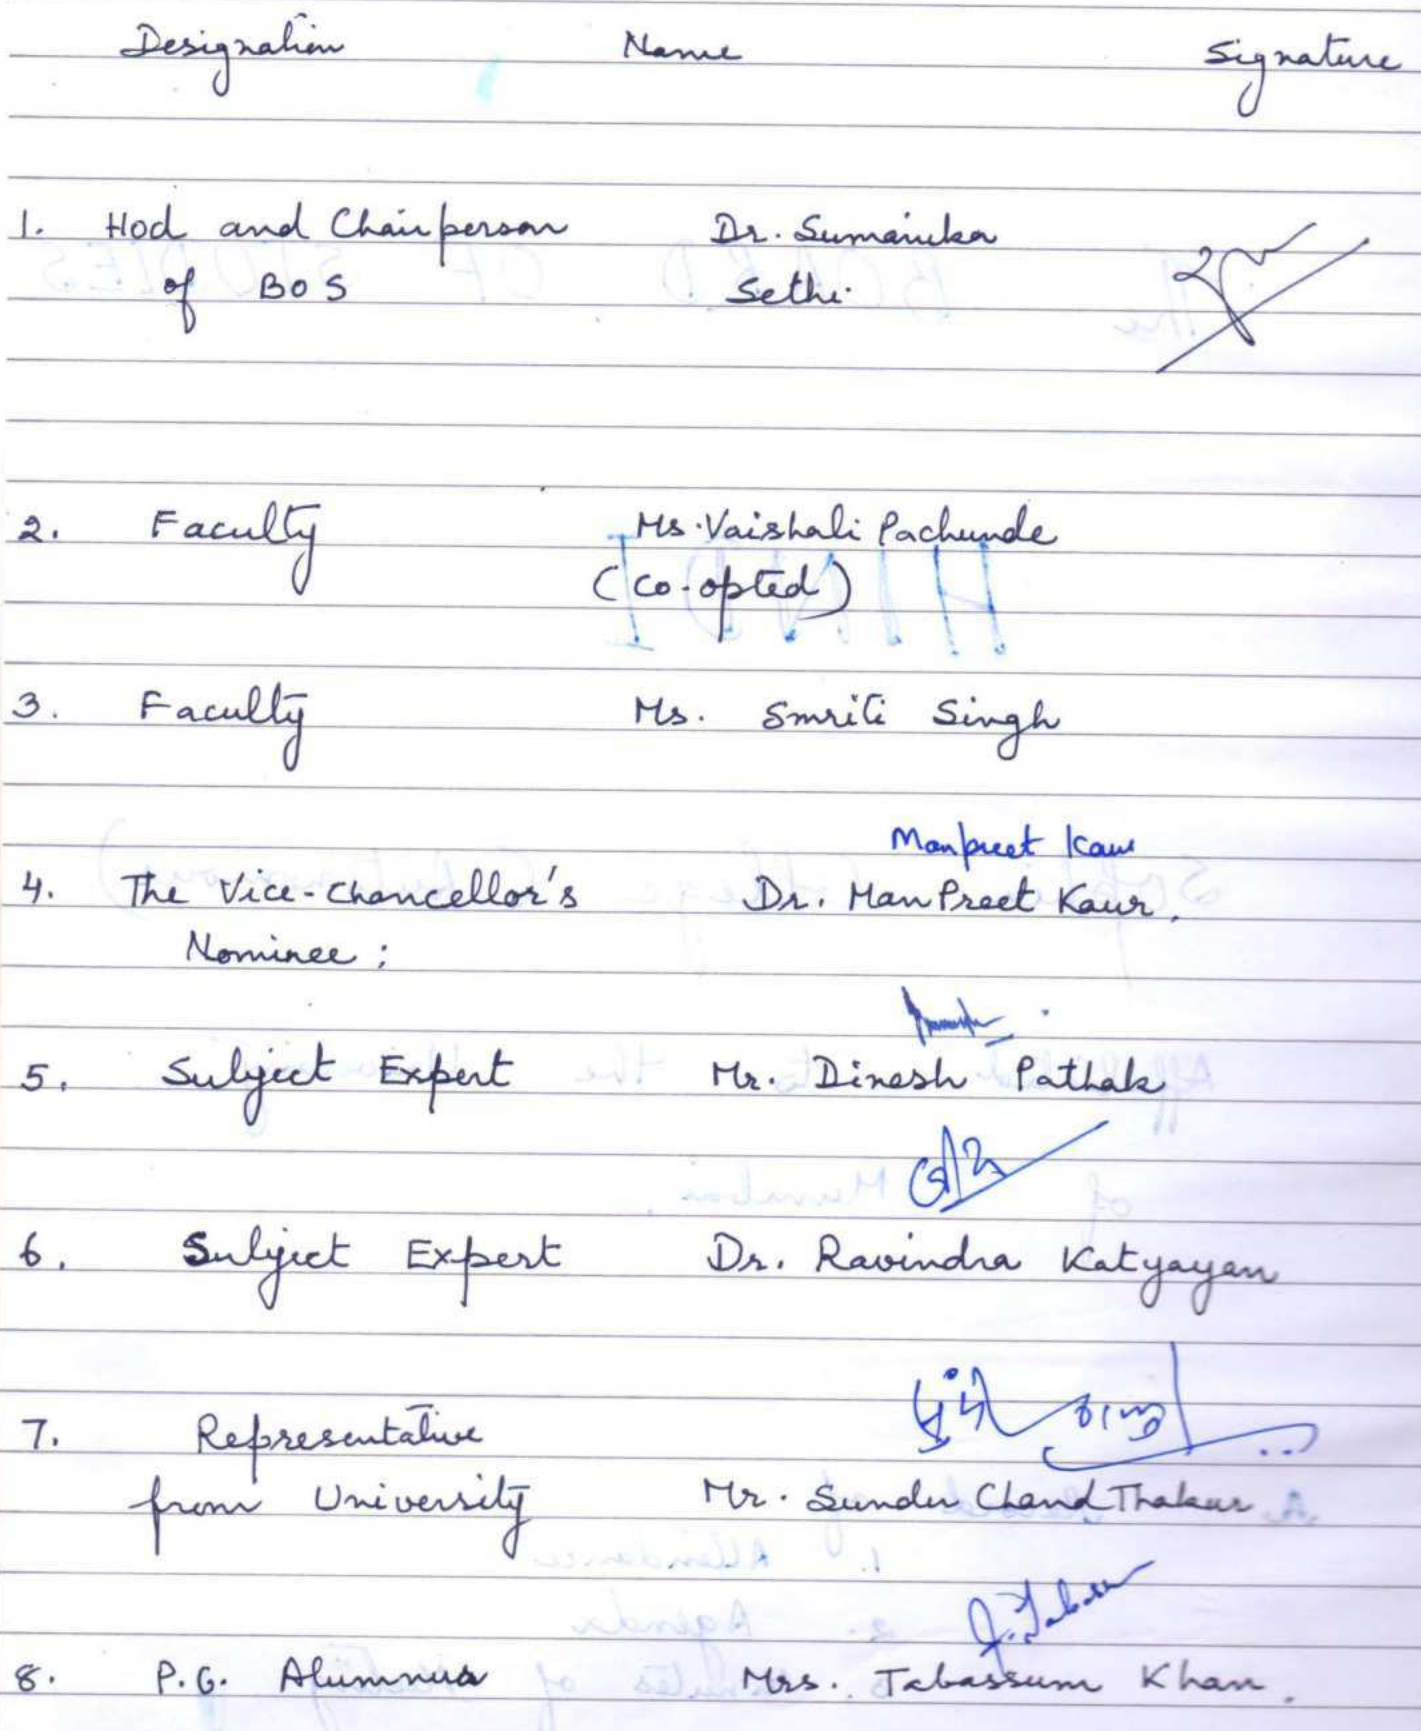 Designation Name Signature
1. Hod and Chairperson Dr. Sumanika
of BOS Sethi
2. Faculty Ms. Vaishali Pachunde
(Co-opted)
3. Faculty Ms. Smriti Singh
Manpreet Kaur
4. The Vice-Chancellor's Dr. ManPreet Kaur.
Nominee :
5. Subject Expert Mr. Dinesh Pathak
6. Subject Expert Dr. Ravindra Katyayan
7. Representative
from University Mr. Sunder Chand Thakur
8. P.G. Alumnus Mrs. Tabassum Khan.